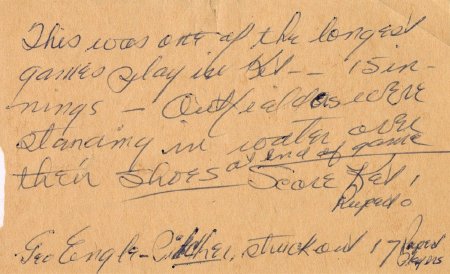 This was one of the longest
games play in Kel -- 15 in-
nings - Outfielders were
standing in water over
their shoes at end of game
Score Kel 1
Ruped 0
Geo Engle - Pitcher, struck out 17 Ruped
Players